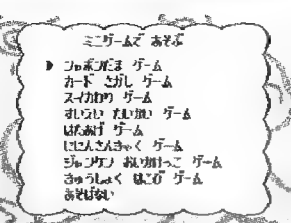 ミニゲームで あそぶ
シャボンだま ゲーム
カード さがし ゲーム
スイカわり ゲーム
すいらい たいかい ゲーム
はたあげ ゲーム
ににんさんきゃく ゲーム
ジャンケン おいかけっこ ゲーム
きゅうしょく はこび ゲーム
あそばない